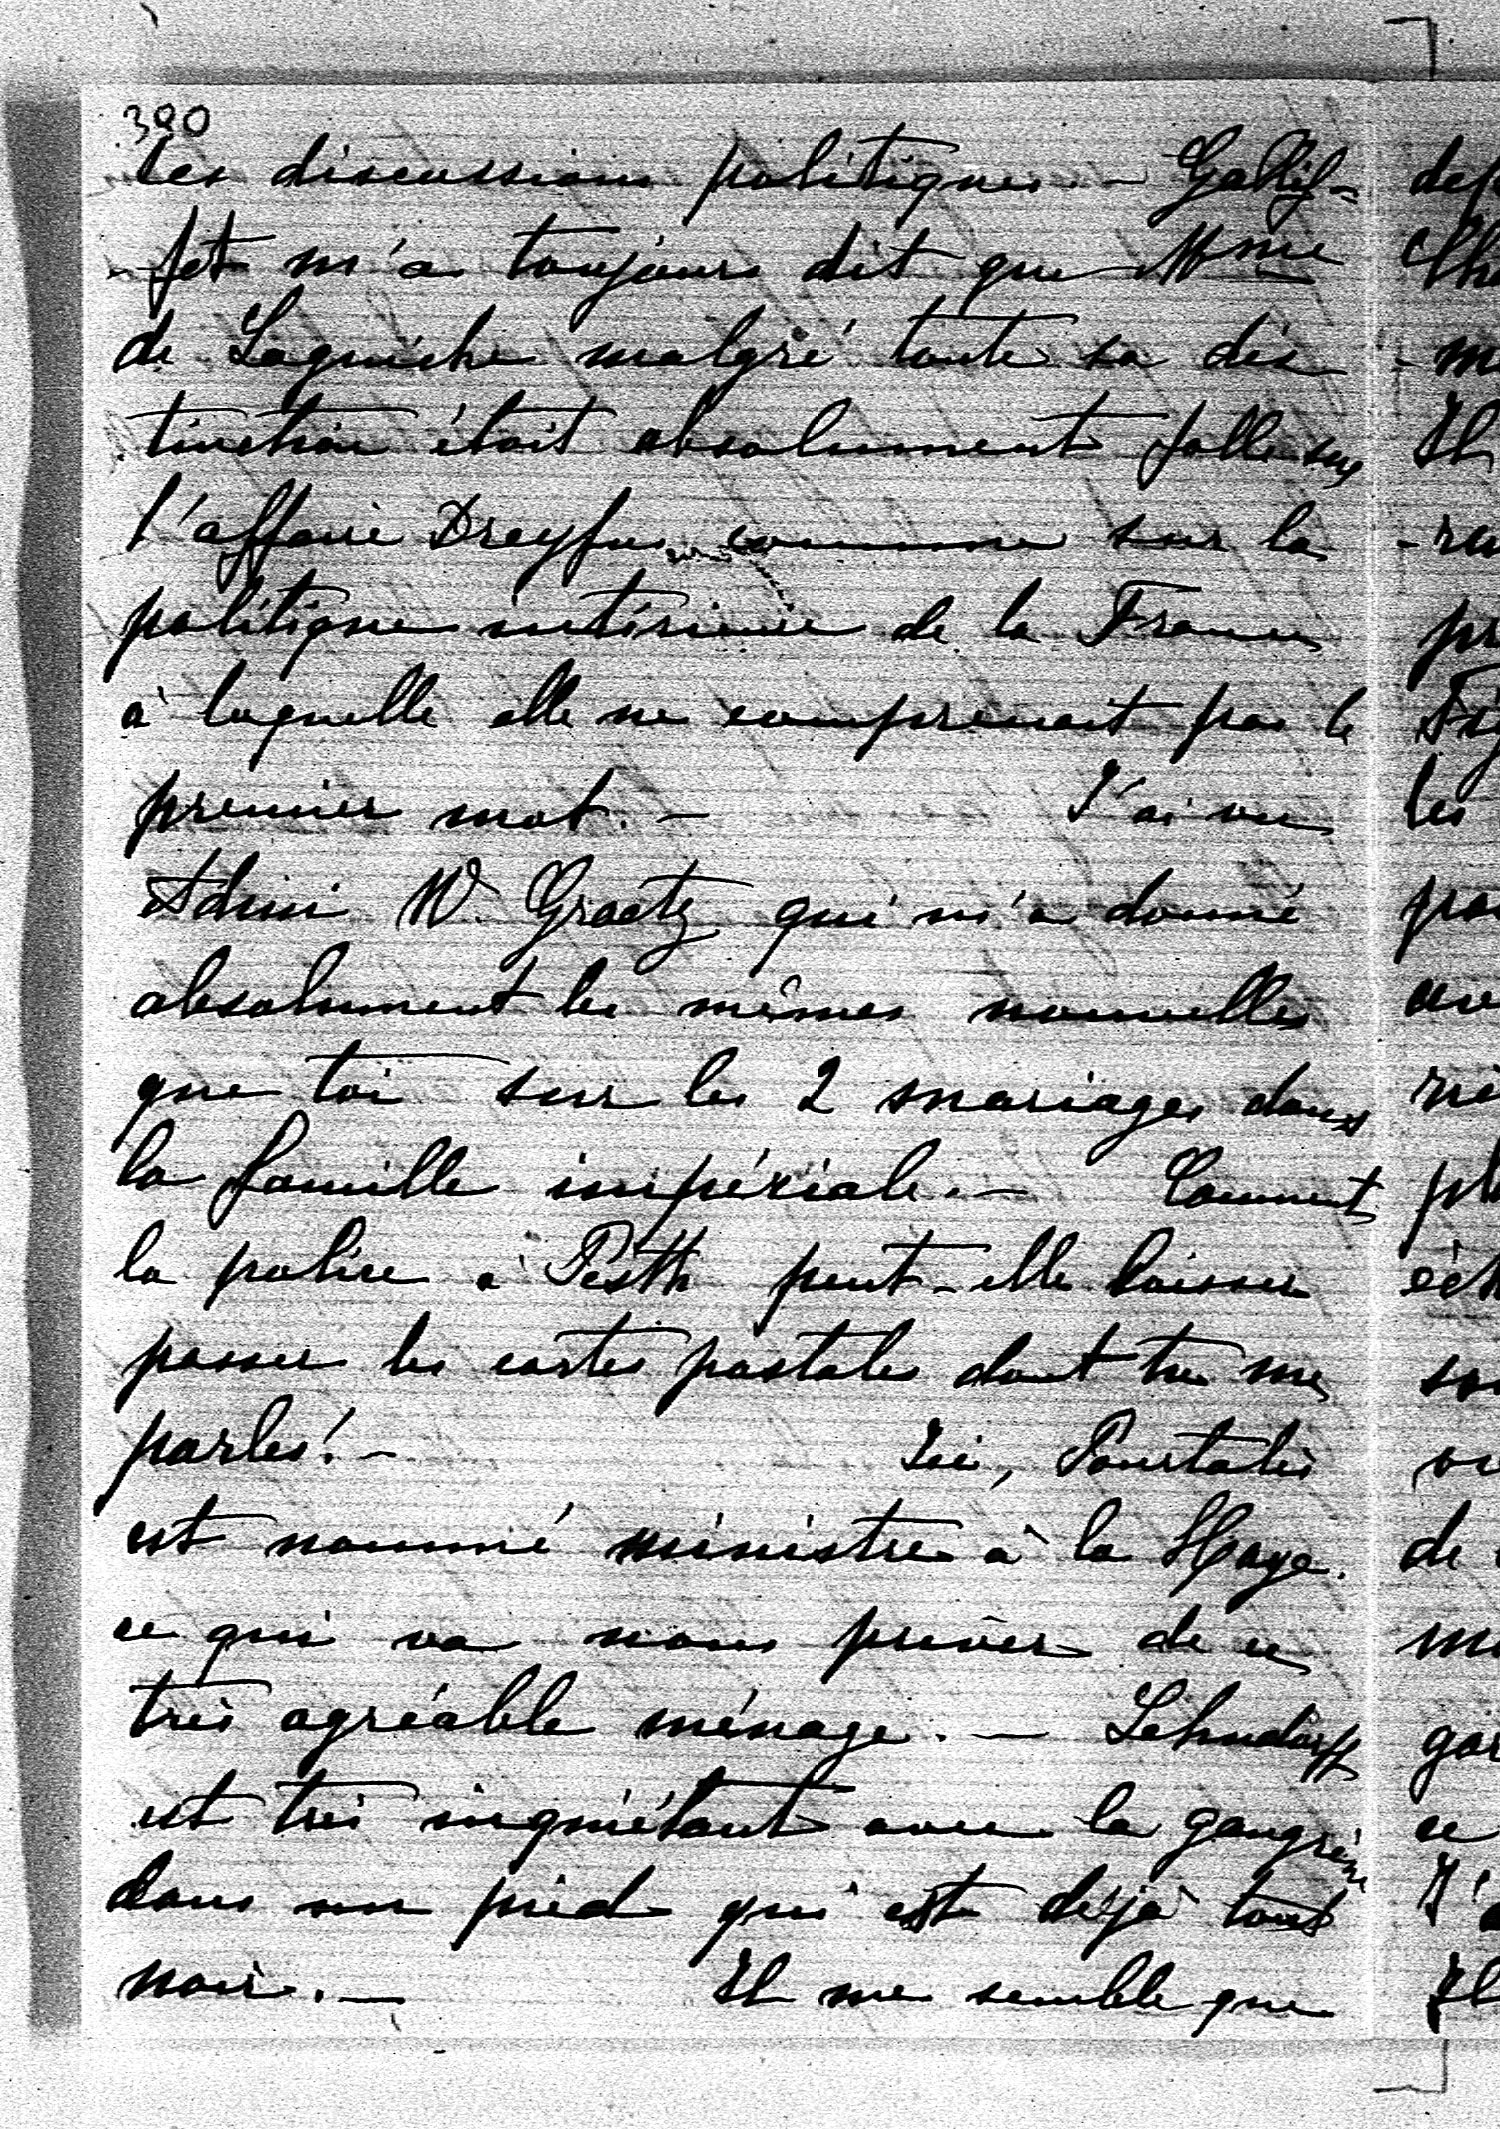 390
les discussions politiques. — Gallif-
-fet m'a toujours dit que Mme
de Laguiche malgré toute sa dis
tinction était absolument folle sur
l'affaire Dreyfus comme sur la
politique intérieure de la France
à laquelle elle ne comprenait pas le
premier mot. — J'ai vu
W. Graetz qui m'a donné
absolument les mêmes nouvelles
que toi sur les 2 mariages dans
la famille impériale. — Comment
la police à Pesth peut-elle laisser
passer les cartes postales dont tu me
parles! — Ici, Pourtalès
est nommé ministre à la Haye.
ce qui va nous priver de ce
très agréable ménage. — Lehndorff
est très inquiétant avec la gangrène
dans un pied qui est déjà tout
noir. — Il me semble que